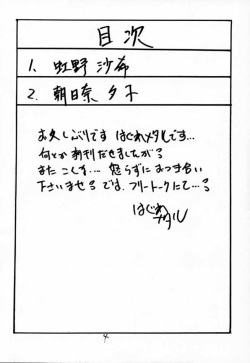 目次
1. 虹野 沙希
2. 朝日奈 夕子
お久しぶりです はぐれメタルです…
何とか新刊だせましたがる
またこしま… 怒らずにおつき合い
下さいませる では、フリートークにて…る
はぐれ
メタル
4